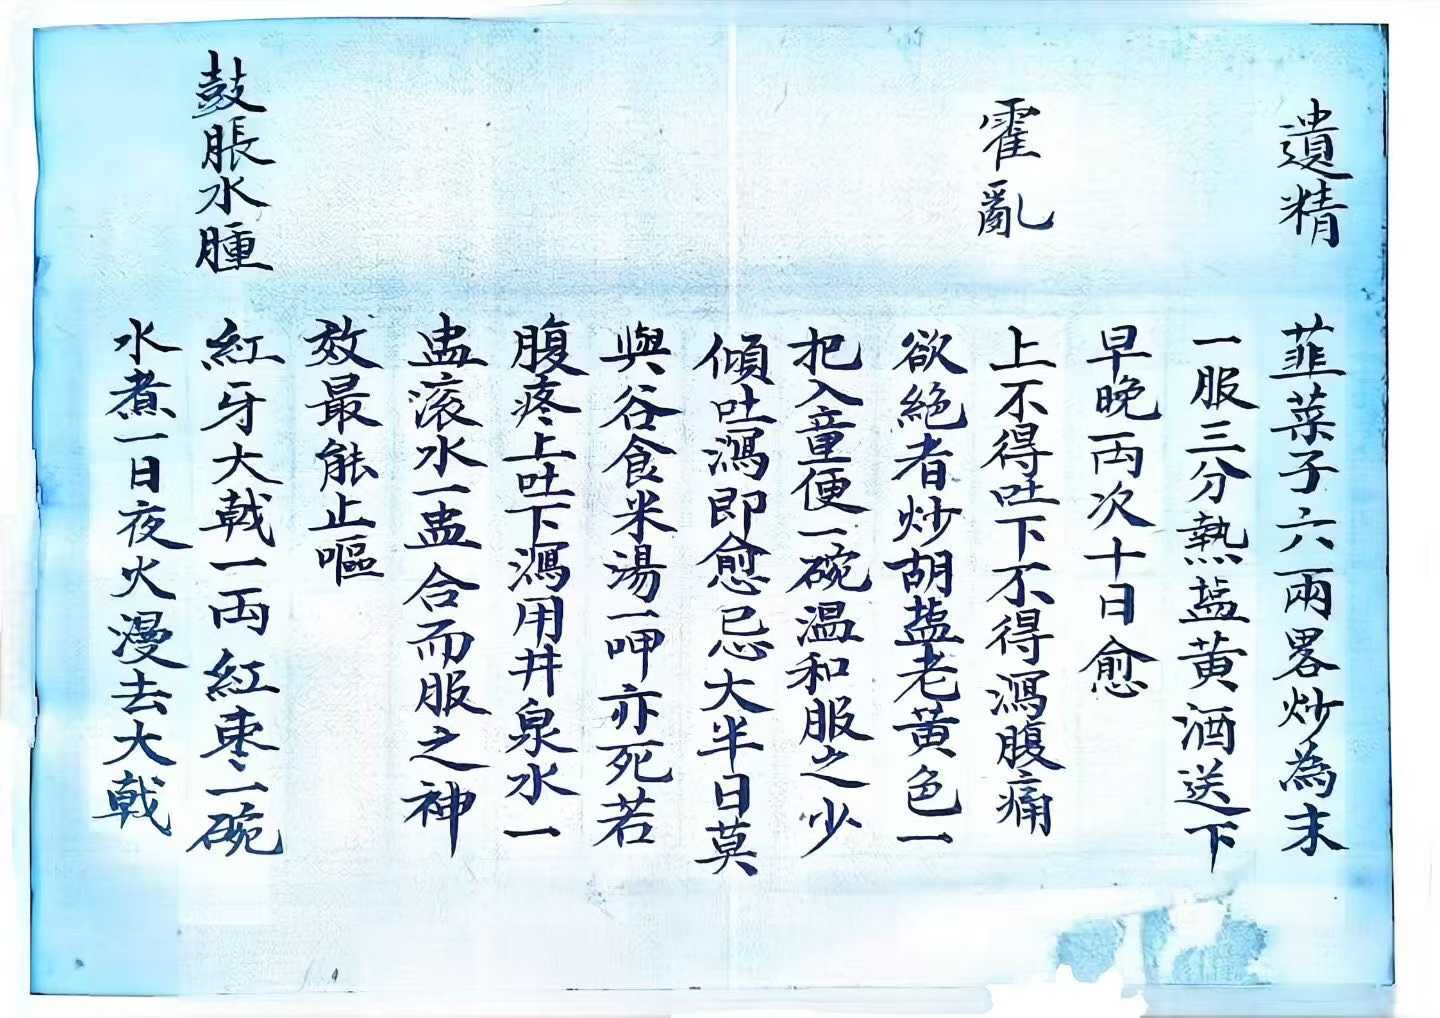 遺精
韮菜子六兩畧炒為末
一服三分熱盐黄酒送下
早晚両次十日愈
霍亂
上不得吐下不得瀉腹痛
欲絶者炒胡盐老黄色一
把入童便一碗温和服之少
傾吐瀉即愈忌大半日莫
與谷食米湯一呷亦死若
腹疼上吐下瀉用井泉水一
盅滚水一盅合而服之神
效最能止嘔
鼓脹水腫
紅牙大戟一両紅枣一碗
水煮一日夜火漫去大戟